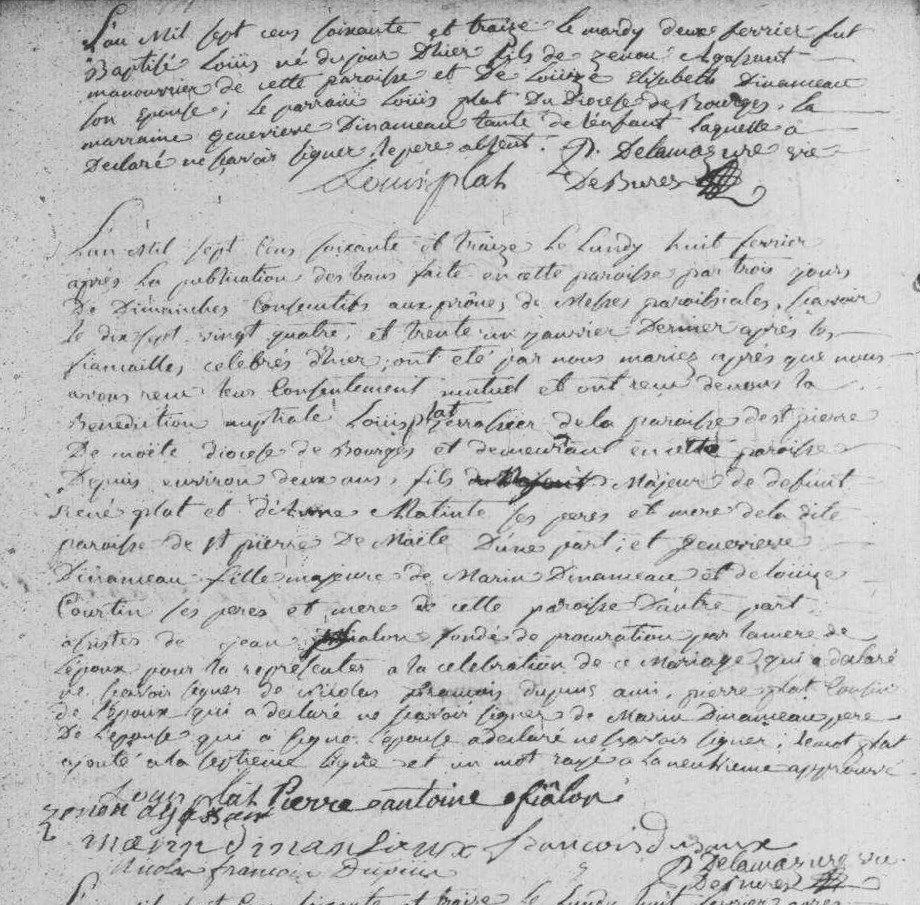 L'an Mil sept cens soixante et traize le mardy deux ferrier fut
Baptisé Loüis né du jour D'hier fils de zenon Agassent
manouvrier de cette paroisse et De Loüize Elisabeth Dinameau
son Epouse; Le parrain Loüis plat Du Diocese de Bourges, la
marraine genevieve Dinameau tante de l'enfant laquelle a
Declaré ne sçavoir signer, le pere absent. Delamazure
Louis plat De Bures
L'an Mil sept Cens soixante et traize Le Lundy huit ferrier
après La publication des bans faite en cette paroisse par trois jours
De Dimanches Consecutifs aux prônes de Messes paroissiales, sçavoir
le dix sept, vingt quatre, et trente un janvier Dernier après les
fiancailles celebrés d'hier, ont été par nous mariez après que nous
avons receu leur Consentement mutuel et ont receu de nous la
Benediction nuptiale Loüis plat terrassier de la paroisse de st pierre
De moële diocese de Bourges et demeurant en cette paroisse
Depuis environ deux ans, fils Majeur de defunt
René plat et Matinte ses peres et mere de la dite
paroisse de st pierre De Maële D'une part; et genevieve
Dinameau fille majeure de Marin Dinameau et de loüize
Courtin ses peres et mere de cette paroisse d'autre part
assistés de jean fialon fondé de procuration par la mere de
L'époux pour la representer a la celebration de ce Mariage, qui a declaré
ne sçavoir signer de Nicolas françois dupuis ami, pierre plat Cousin
de L'époux qui a declaré ne sçavoir signer de Marin Dinameau pere
De L'épouse qui a signé. l'épouse a declaré ne sçavoir signer; le mot plat
ajouté a la septieme ligne et un mot rayé a la neuvieme approuvé
Louis plat Pierre antoine fiâlon
zenon agassan
marin dinan françois
Nicolas francois Dupuis Delamazure
De Bures
L'an Mil sept Cens soixante et traize le Lundy huit ferrier après